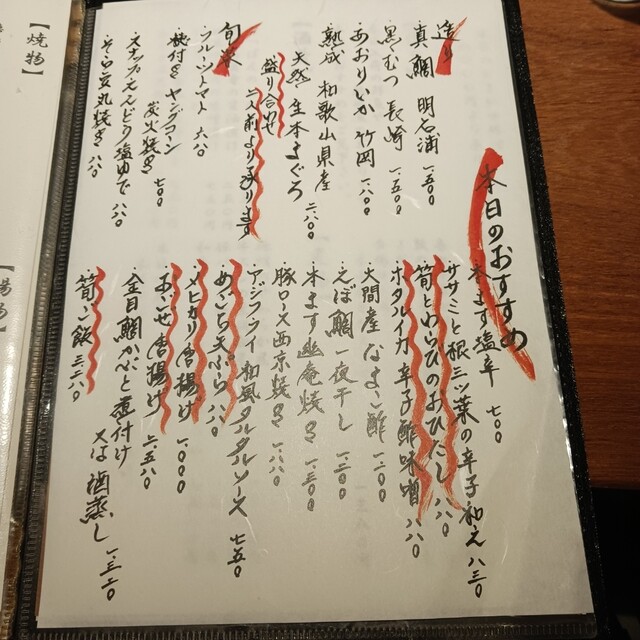 本日のおすすめ
造り
真鯛 明石浦 一、五〇〇
黒むつ 長崎 一、五〇〇
あおりいか 竹岡 一、二八〇
熟成 和歌山県産
天然 生本まぐろ 二、八〇〇
盛り合わせ
二人前よりあります
旬菜
フルーツトマト 六八〇
皮付き ヤングコーン
炭火焼き 七〇〇
スナップえんどう塩ゆで 八八〇
そら豆丸焼き 八八〇
本ます塩辛 七〇〇
ササミと根三ツ葉の辛子和え 八三〇
筍とわらびのおひたし 八八〇
ホタルイカ 辛子酢味噌 八八〇
大間産 なまこ酢 一、二〇〇
えぼ鯛 一夜干し 一、二〇〇
本ます幽庵焼き 一、三〇〇
豚ロース西京焼き 一、一八〇
アジフライ 和風タルタルソース 七五〇
めごち天ぷら 八八〇
メヒカリ唐揚げ 一、〇〇〇
おこぜ唐揚げ 二、五八〇
金目鯛かぶと煮付け
又は酒蒸し 一、三二〇
筍ご飯 三、二八〇
【焼物】